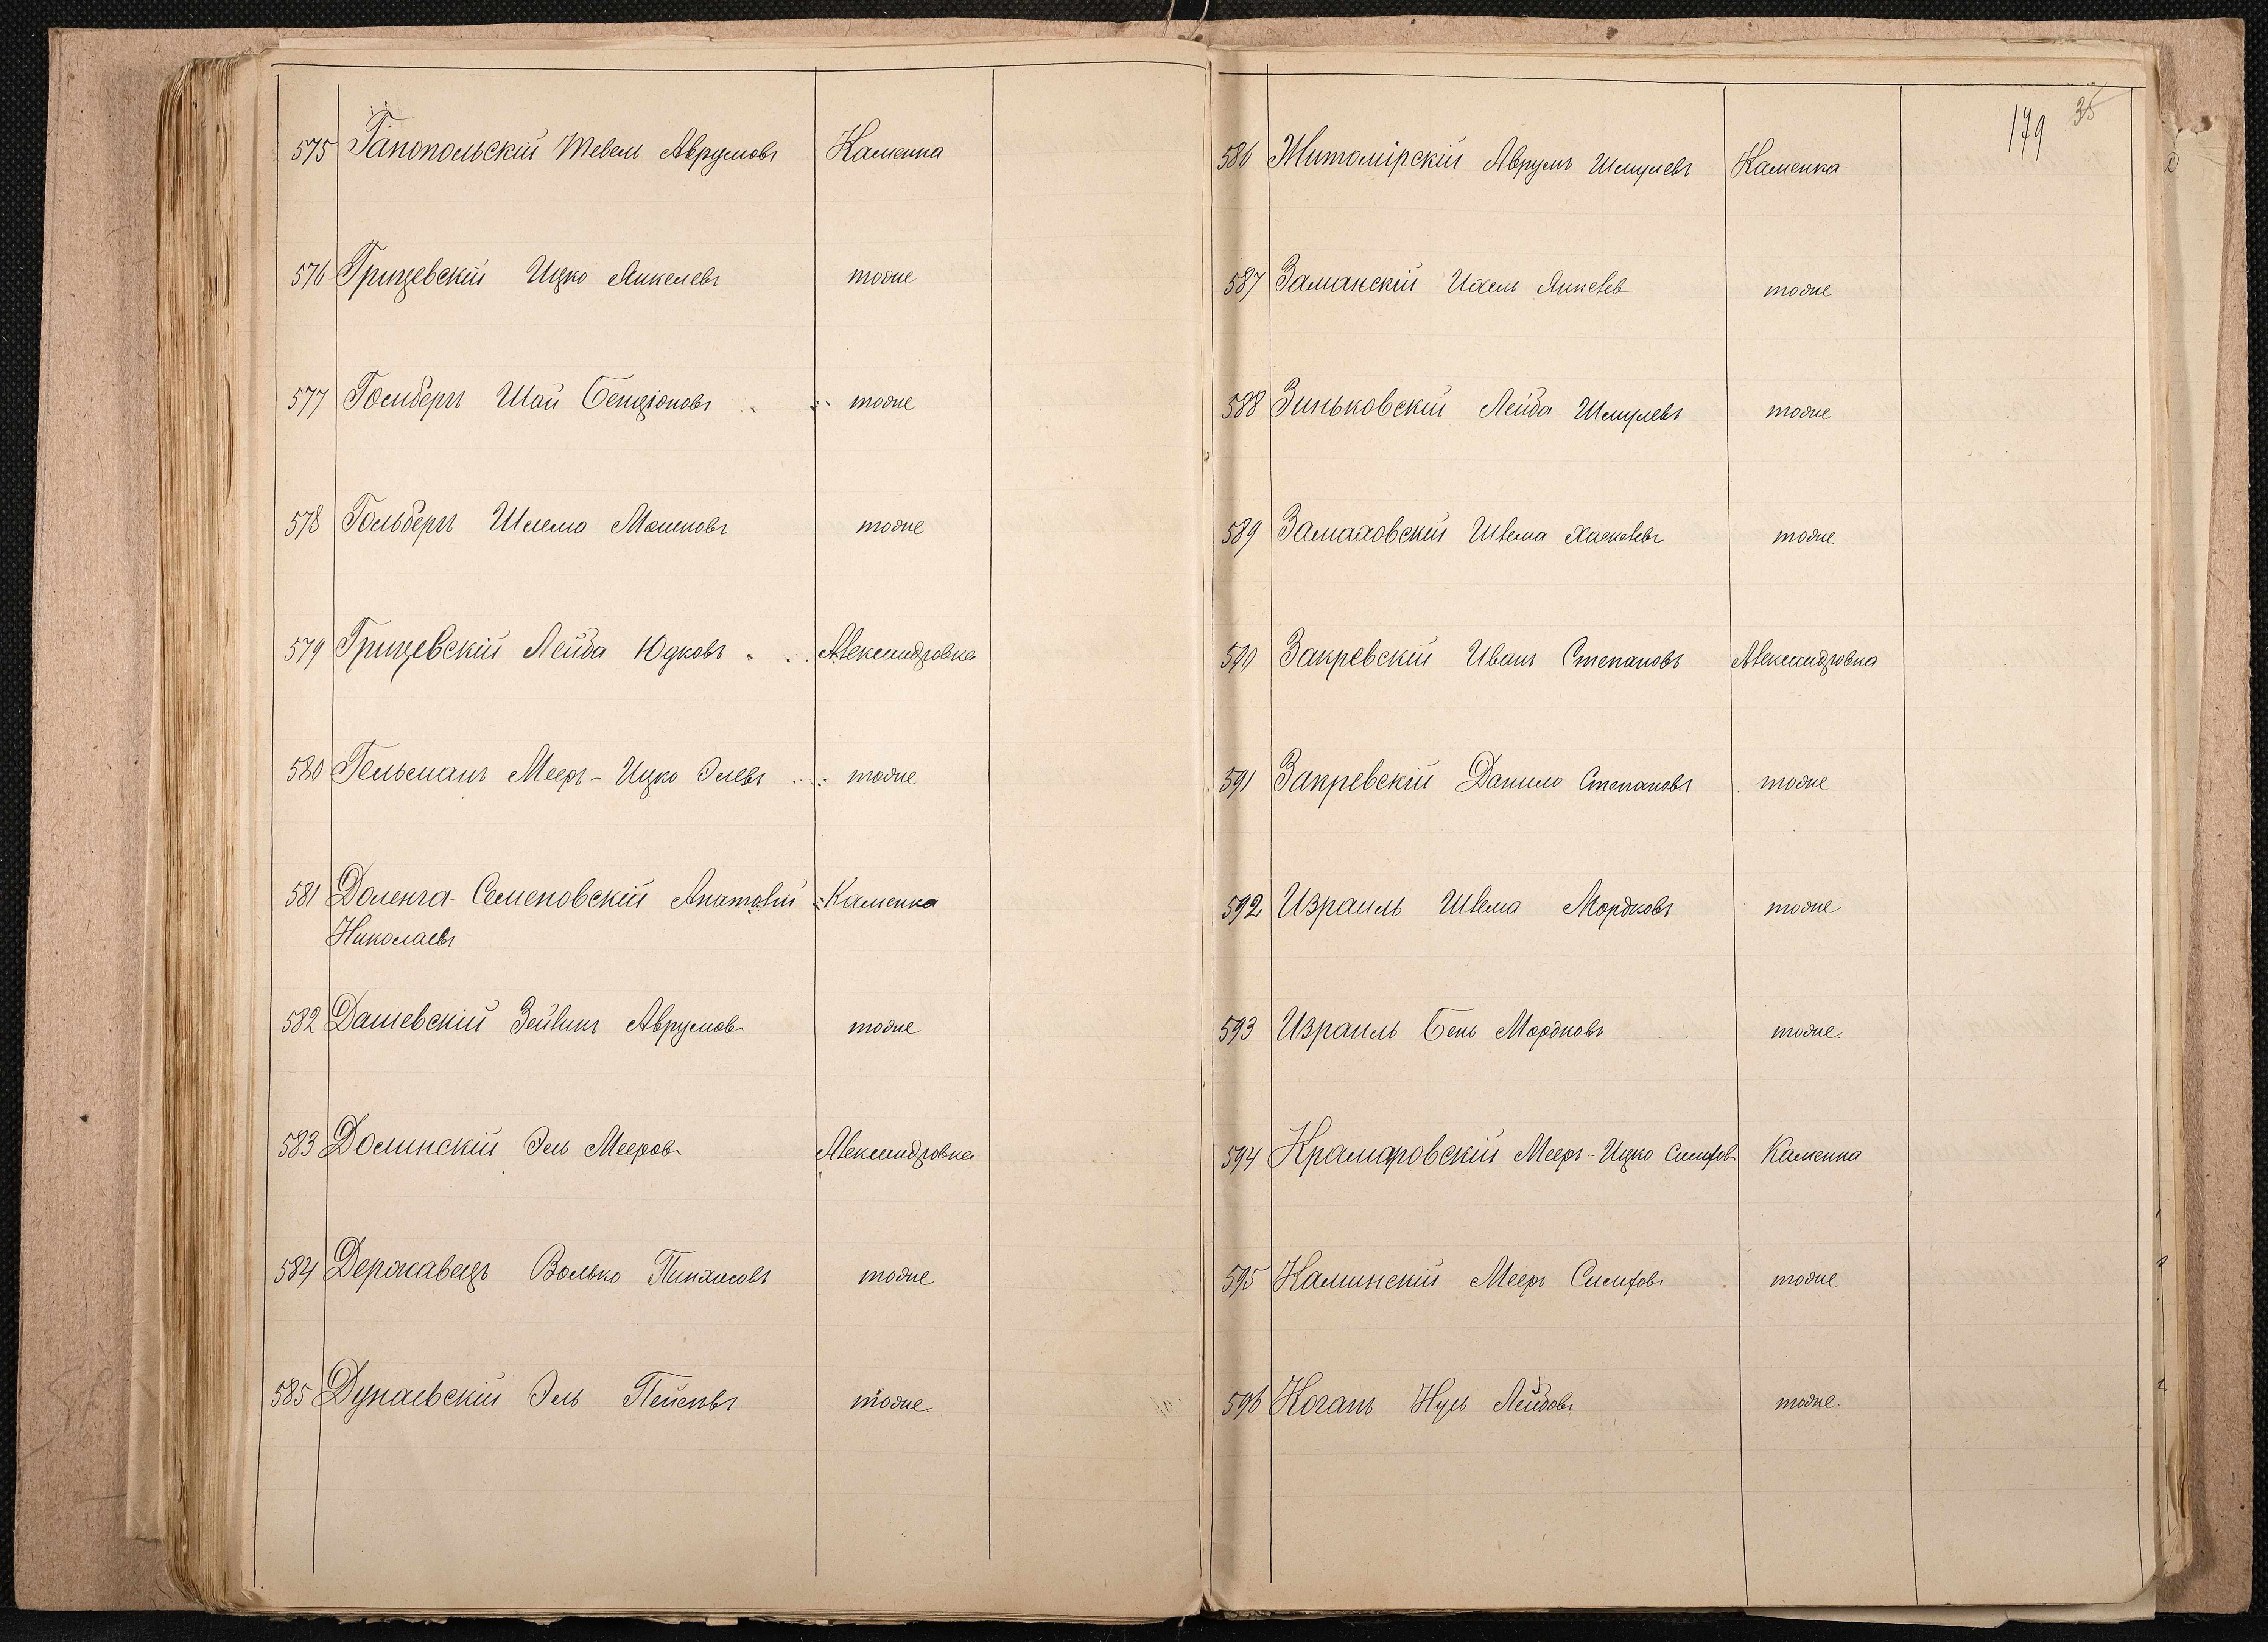 575 Гапопольскій Тевель Аврумовъ Каменка
576 Грицевскій Ицко Янкелевъ тоже
577 Гомбергъ Шай Бенціоновъ тоже
578 Гольбергъ Шлема Мошковъ тоже
579 Грицевскій Лейба Юдковъ Александровка
580 Гельманъ Мееръ-Ицко Элевъ тоже
581 Доленга-Семеновскій Анатолій Каменка
Николаевъ
582 Дашевскій Зейликъ Аврумов тоже
583 Долинскій Эль Мееров Александровка
584 Державецъ Волько Пинхасовъ тоже
585 Дунаевскій Эль Пейсявъ тоже
179 35
586 Житомірскій Аврумъ Шмулевъ Каменка
587 Заманскій Ихель Янкелев тоже
588 Зиньковскій Лейба Шмулевъ тоже
589 Замаховскій Шлема Хаскелевъ тоже
590 Закревскій Иванъ Степановъ Александровка
591 Закревскій Данило Степановъ тоже
592 Израиль Шлема Мордковъ тоже
593 Израиль Бень Мордковъ тоже.
594 Крамаровскій Мееръ-Ицко Симхов Каменка
595 Каминскій Мееръ Симхов тоже
596 Коганъ Нуль Лейбовъ тоже.